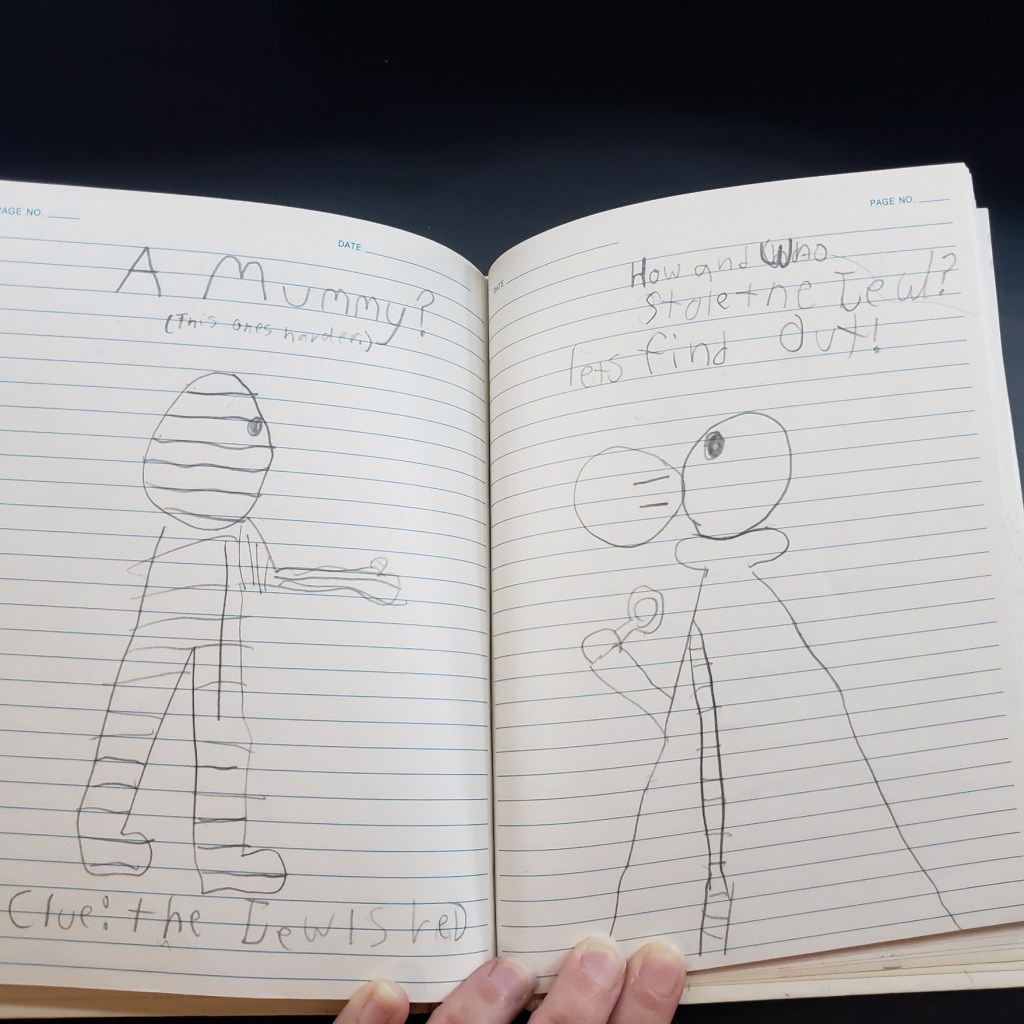 PAGE NO.
DATE
A Mummy?
(This ones harder)
Clue: the Jewl S reD
PAGE NO.
DATE
How and Who
Stole the Jewl?
lets find Out!